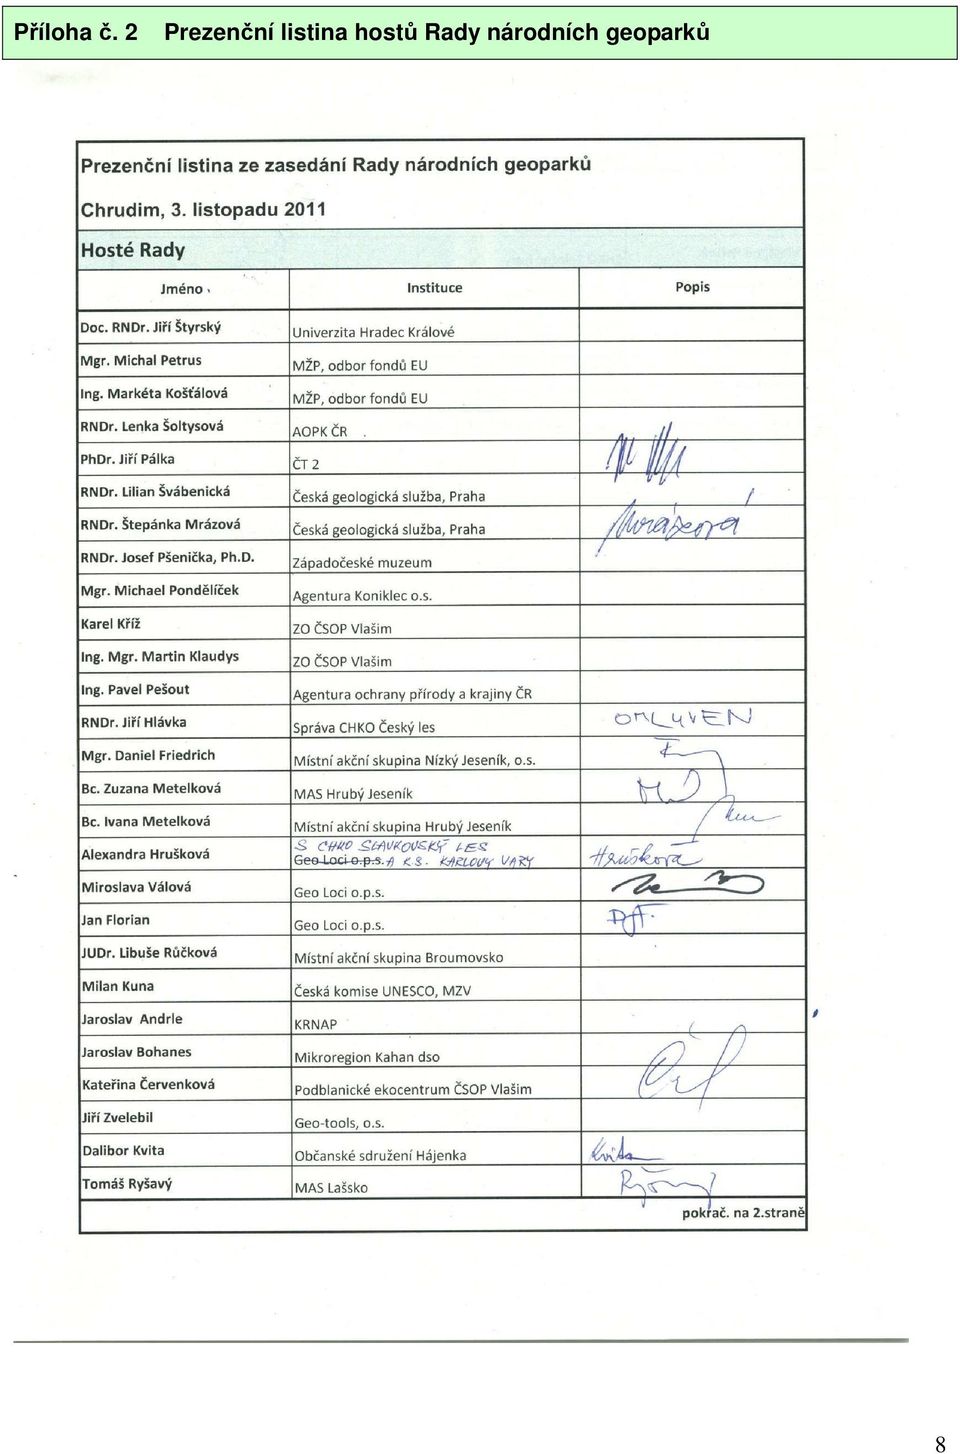 Příloha č. 2 Prezenční listina hostů Rady národních geoparků
Prezenční listina ze zasedání Rady národních geoparků
Chrudim, 3. listopadu 2011
Hosté Rady
Jméno Instituce Popis
Doc. RNDr. Jiří Štyrský Univerzita Hradec Králové
Mgr. Michal Petrus MŽP, odbor fondů EU
Ing. Markéta Košťálová MŽP, odbor fondů EU
RNDr. Lenka Šoltysová AOPK ČR
PhDr. Jiří Pálka ČT 2
RNDr. Lilian Švábenická Česká geologická služba, Praha
RNDr. Štepánka Mrázová Česká geologická služba, Praha Mrázková
RNDr. Josef Pšenička, Ph.D. Západočeské muzeum
Mgr. Michael Pondělíček Agentura Koniklec o.s.
Karel Kříž ZO ČSOP Vlašim
Ing. Mgr. Martin Klaudys ZO ČSOP Vlašim
Ing. Pavel Pešout Agentura ochrany přírody a krajiny ČR
RNDr. Jiří Hlávka Správa CHKO Český les OMLUVEN
Mgr. Daniel Friedrich Místní akční skupina Nízký Jeseník, o.s.
Bc. Zuzana Metelková MAS Hrubý Jeseník
Bc. Ivana Metelková Místní akční skupina Hrubý Jeseník
S CHKO SLAVKOVSKÝ LES
Alexandra Hrušková Geo Loci o.p.s. A K.S. KARLOVY VARY Hrušková
Miroslava Válová Geo Loci o.p.s.
Jan Florian Geo Loci o.p.s.
JUDr. Libuše Růčková Místní akční skupina Broumovsko
Milan Kuna Česká komise UNESCO, MZV
Jaroslav Andrle KRNAP
Jaroslav Bohanes Mikroregion Kahan dso
Kateřina Červenková Podblanické ekocentrum ČSOP Vlašim
Jiří Zvelebil Geo-tools, o.s.
Dalibor Kvita Občanské sdružení Hájenka Kvita
Tomáš Ryšavý MAS Lašsko
pokrač. na 2.straně
8